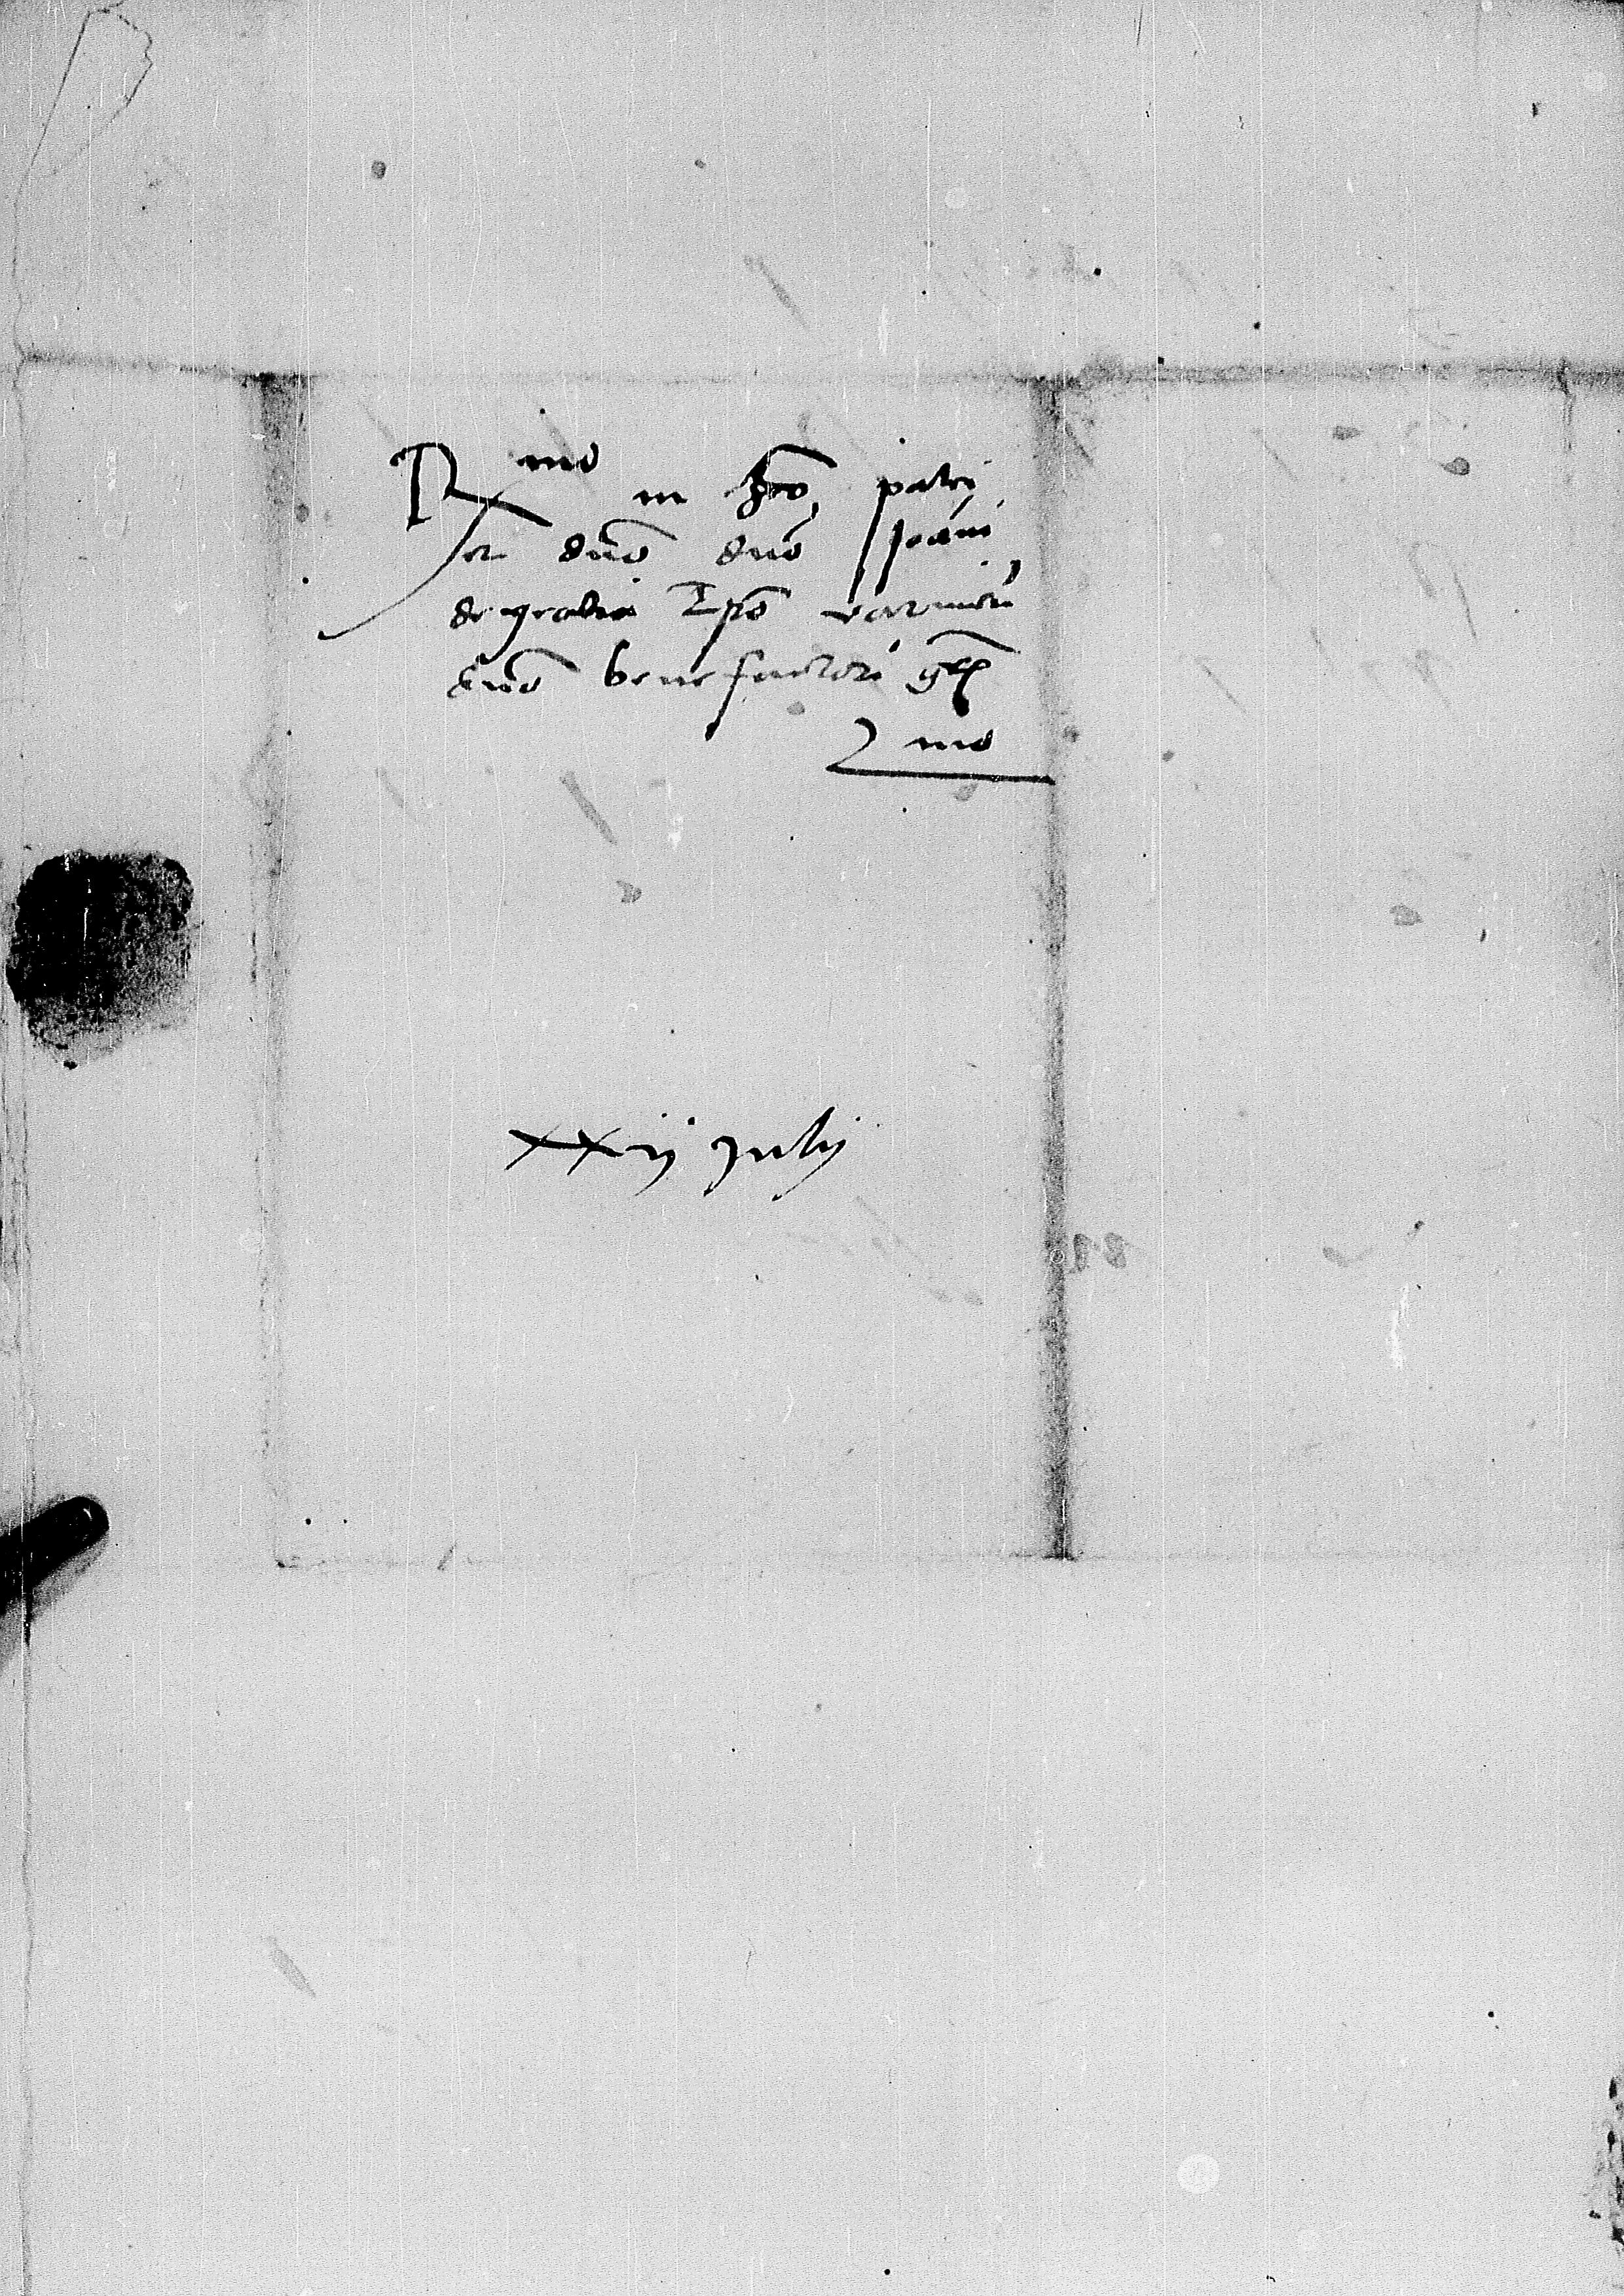 R mo in xpo patri
et dno dno Joanni
dei gratia Epo varmien
dno benefactori
mo
xxij Julij